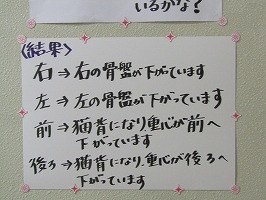 いるかな?
〈結果〉
右⇒右の骨盤が下がっています
左⇒左の骨盤が下がっています
前⇒猫背になり、重心が前へ
下がっています
後ろ⇒猫背になり、重心が後ろへ
下がっています